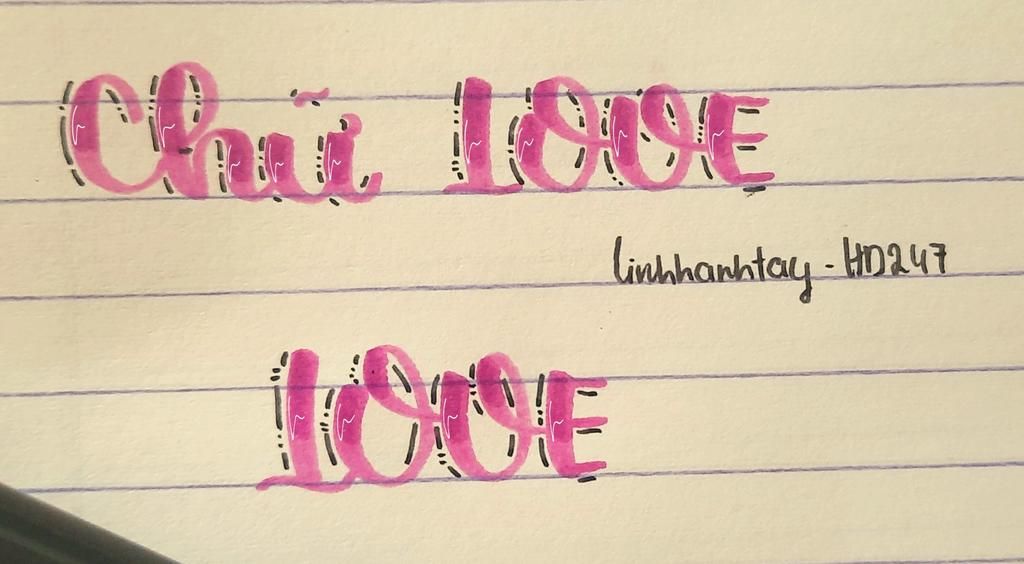 Chữ LOVE
linhhanhtay - HD247
LOVE